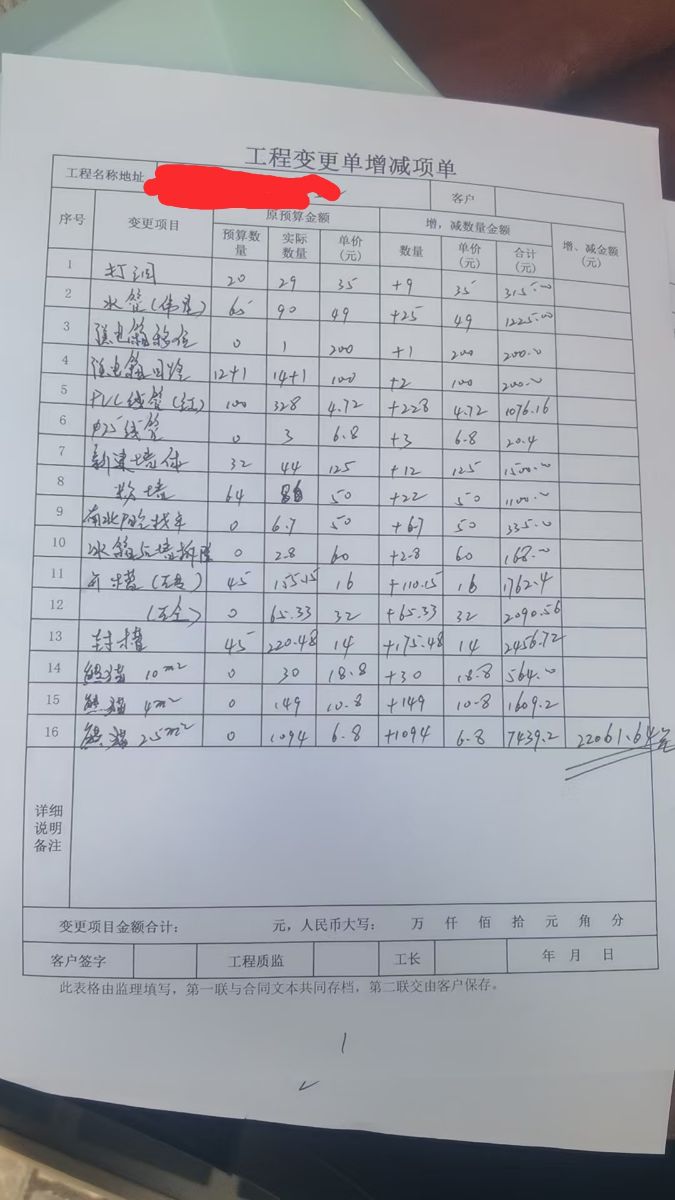 工程变更单增减项单
工程名称地址 客户
序号 变更项目 原预算金额 增，减数量金额 增、减金额（元）
预算数量 实际数量 单价（元） 数量 单价（元） 合计（元）
1 打洞 20 29 35 +9 35 315.00
2 水管（伟星） 65 90 49 +25 49 1225.00
3 强电箱移位 0 1 200 +1 200 200.00
4 强电箱回路 12+1 14+1 100 +2 100 200.00
5 PVC线管（红） 100 328 4.72 +228 4.72 1076.16
6 φ25线管 0 3 6.8 +3 6.8 20.4
7 新建墙体 32 44 125 +12 125 1500.00
8 粉墙 64 86 50 +22 50 1100.00
9 南北 0 6.7 50 +6.7 50 335.00
10 冰箱后墙拆除 0 2.8 60 +2.8 60 168.00
11 开槽 45 155.15 16 +110.15 16 1762.4
12 0 65.33 32 +65.33 32 2090.56
13 封槽 45 220.48 14 +175.48 14 2456.72
14 熊猫 10m² 0 30 18.8 +30 18.8 564.00
15 熊猫 4m² 0 149 10.8 +149 10.8 1609.2
16 熊猫 2.5m² 0 1094 6.8 +1094 6.8 7439.2 22061.64元
详细
说明
备注
变更项目金额合计： 元，人民币大写： 万 仟 佰 拾 元 角 分
客户签字 工程质监 工长 年 月 日
此表格由监理填写，第一联与合同文本共同存档，第二联交由客户保存。
1